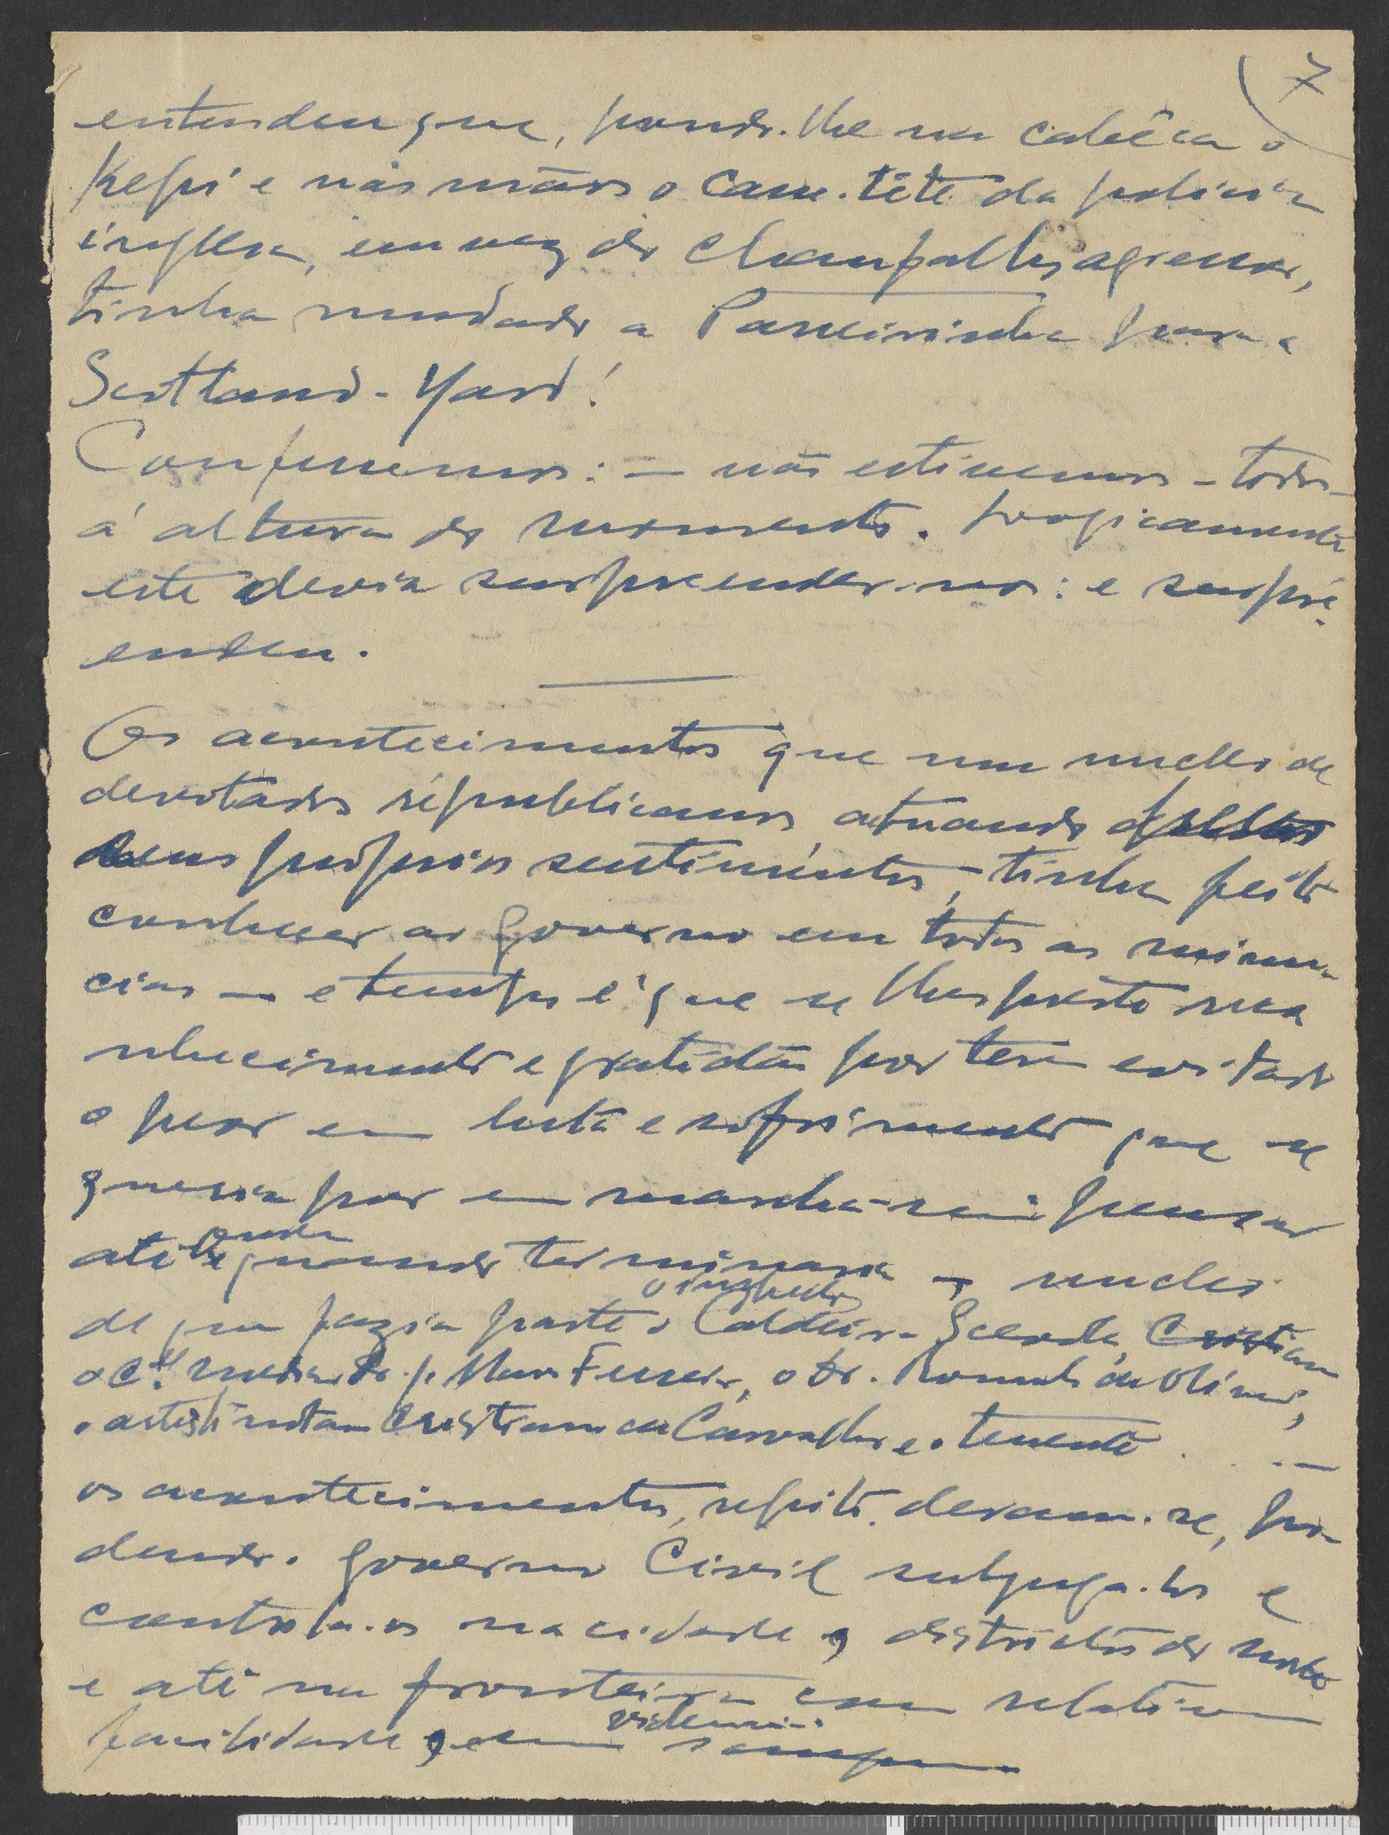 7
entendeu que, pondo-lhe na cabêça o
Kepi e nas mãos o casse-tête da policia
inglesa, em vez do chanfalho agressor,
tinha mudado a Parreirinha para a
Scotland-Yard!
Confessemos: — não estivemos - todos -
á altura do momento. Logicamente
este devia surpreender-nos: e surpre-
endeu.
Os acontecimentos que um nucleo de
devotados républicanos, actuando
seus proprios sentimentos, - tinha feito
conhecer ao Governo em todas as minu-
cias — e tempo é que se lhes preste reco-
nhecimento e gratidão por terem evitado
o peor em luta e sofrimento que se
queria por em marcha sem pensar
até onde e quando terminaria — nucleo
de que fazia parte o Caldeira Scevola, Cristiano
o Cel. medico Dr. José Maria Ferreira, o Dr. Romulo de Oliveira,
o artista Cristiano de Carvalho e o tenente . . . —
os acontecimentos, repito, deram-se, po-
dendo o Governo Civil subjuga-los e
controla-os na cidade, districtos do norte
e até na fronteira com relativa
facilidade, e sem violencia sangue.